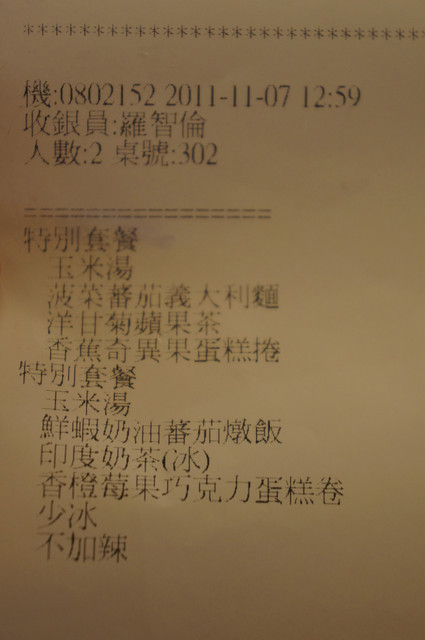 ******************************
機:0802152 2011-11-07 12:59
收銀員:羅智倫
人數:2 桌號:302
==================
特別套餐
玉米湯
菠菜蕃茄義大利麵
洋甘菊蘋果茶
香蕉奇異果蛋糕捲
特別套餐
玉米湯
鮮蝦奶油蕃茄燉飯
印度奶茶(冰)
香橙莓果巧克力蛋糕卷
少冰
不加辣